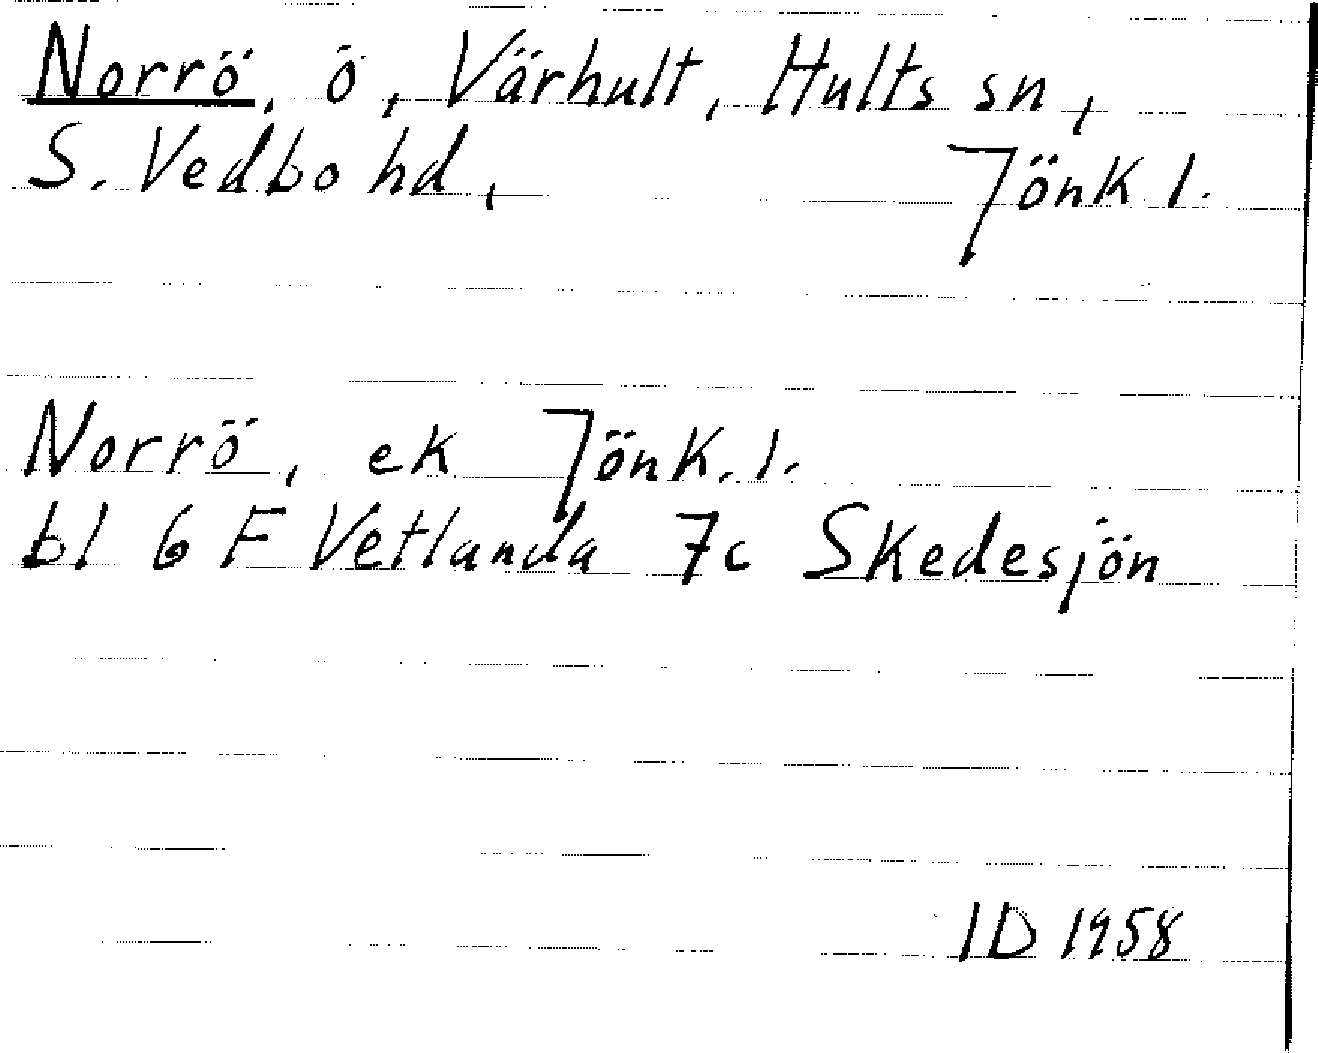 Norrö, ö, Värhult, Hults sn,
S. Vedbo hd, Jönk l.
Norrö, ek Jönk. l.
bl 6 F Vetlanda 7c Skedesjön
ID 1958